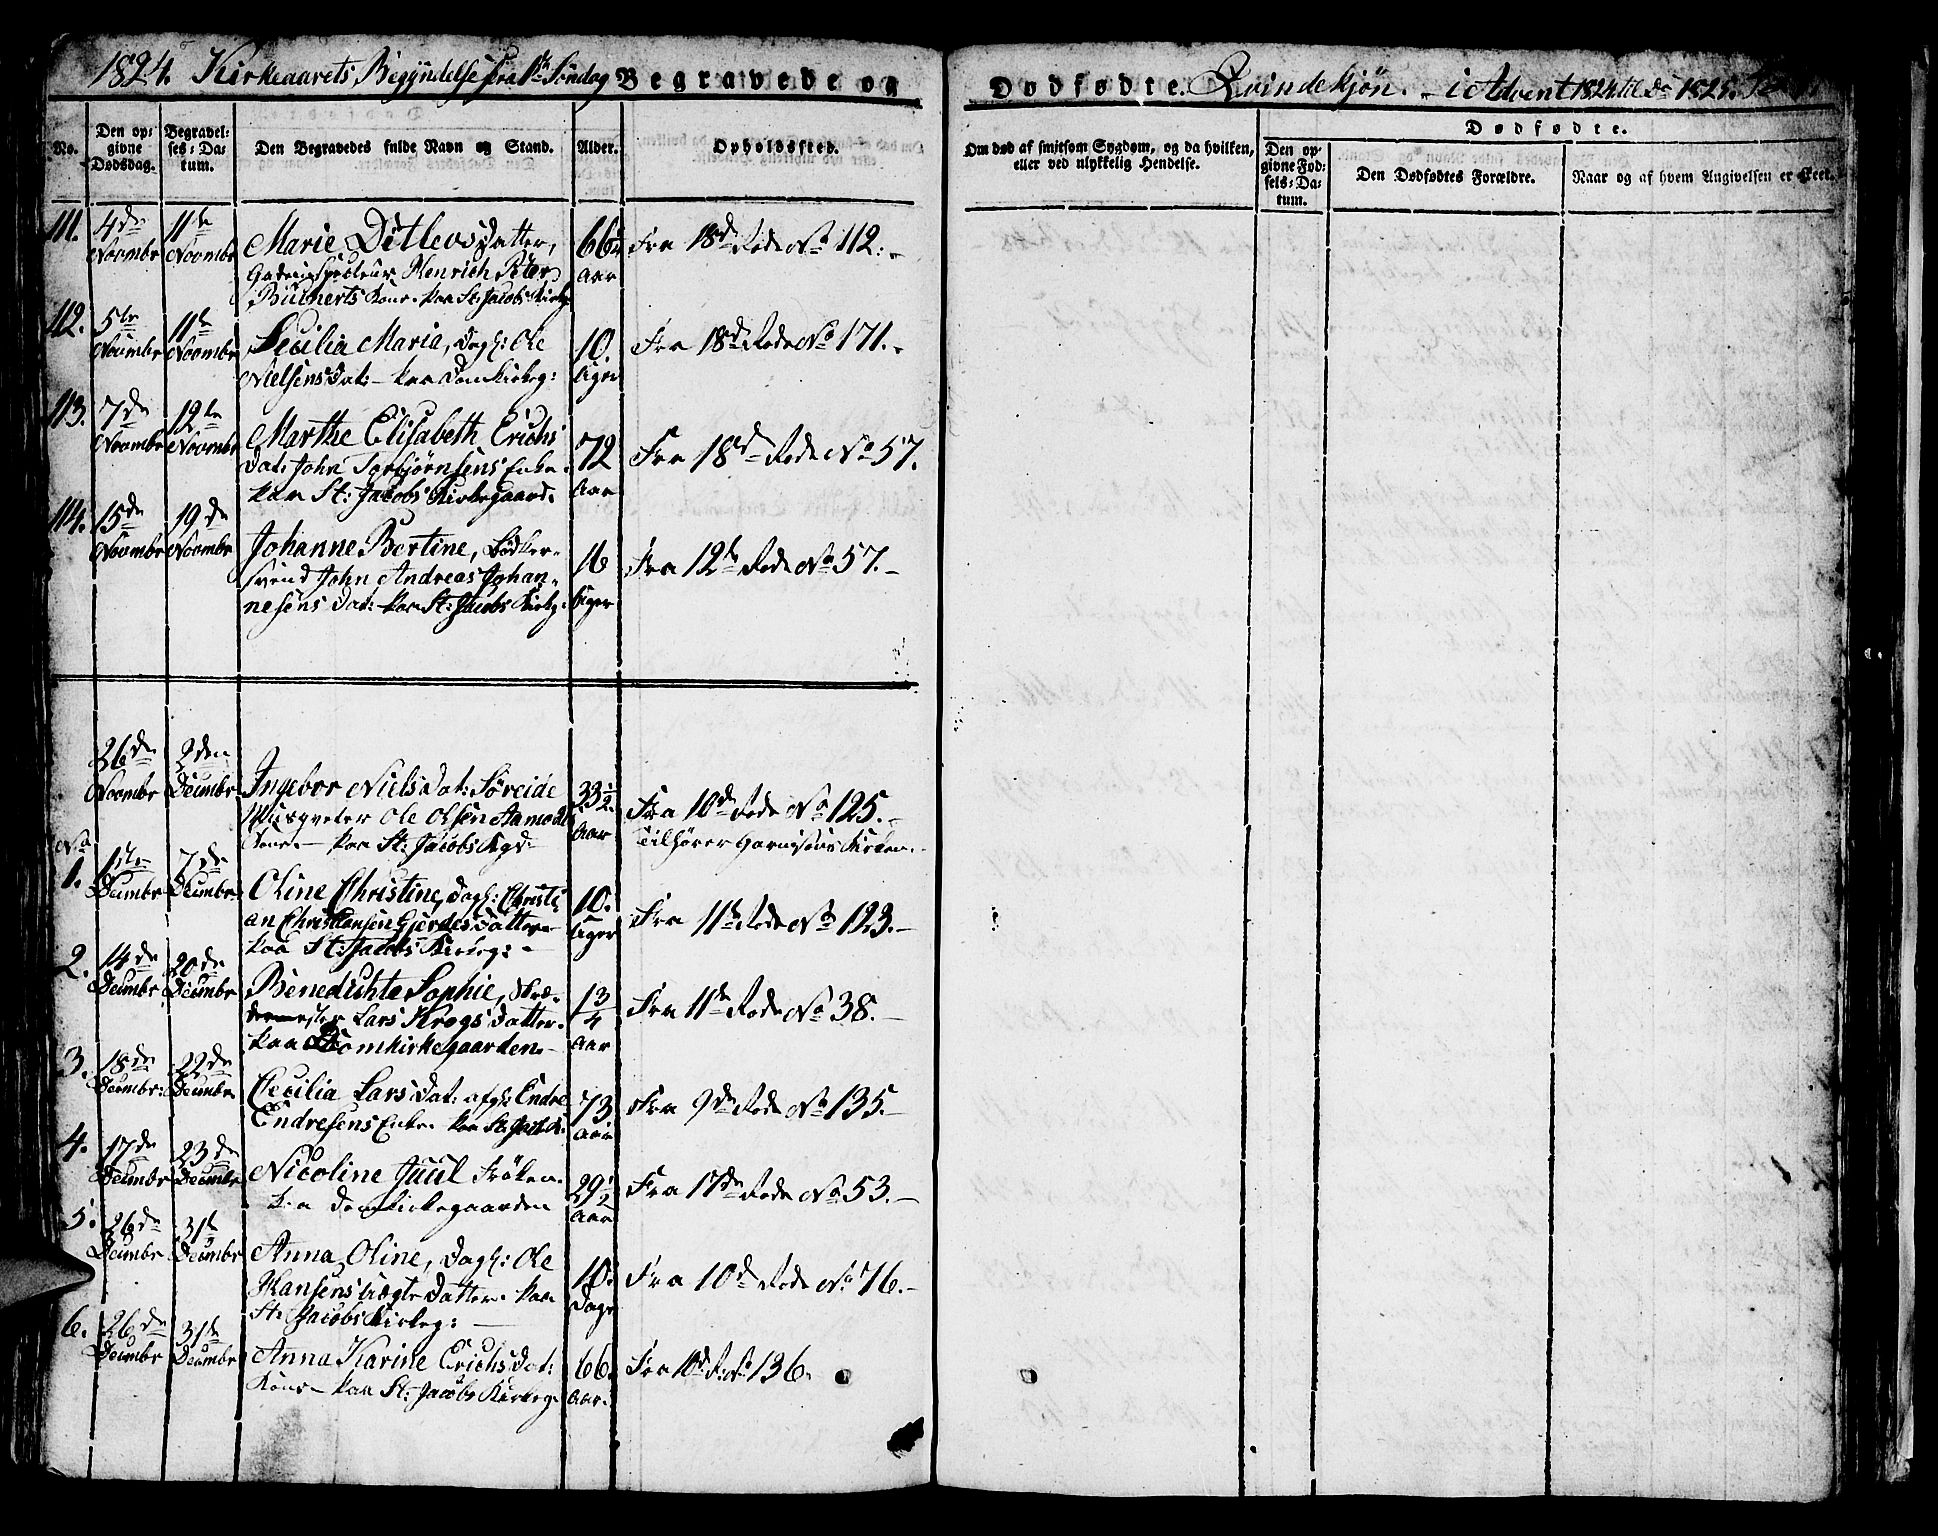 1824. Kirkeaarets Begyndelse fra 1ste Søndag Begravede og Dødfødte. Qvindekjøn. - i Advent 1824 til Do 1825.
No.
Den op-
givne
Dødsdag.
Begravel-
ses-Da-
tum.
Den Begravedes fulde Navn og Stand.
Alder.
Opholdssted.
Om død af smitsom Sygdom, og da hvilken,
eller ved ulykkelig Hendelse.
Dødfødte.
Den op-
givne Fød-
sels-Da-
tum.
Den Dødfødtes Forældre.
Naar og af hvem Angivelsen er skeet.
111. 4de Novembr 11te Novembr
Marie Ditlevsdatter,
Henrich Peter
Bücherts Kone. paa St: Jacobs Kirkg
66 Aar
Fra 18de Rode No 112.-
112. 5te Novembr 11te Novembr
Cecilia Maria, Dagl: Ole
Nielsens Dat:- paa Domkirkeg:
10. Uger
Fra 18de Rode No 171.-
113. 7de Novembr 12te Novembr
Marthe Elisabeth Erichs
Dat: John Torbjørnsens Enke.
paa St: Jacobs Kirkegaard.
72 Aar
Fra 18de Rode No 57.
114. 15de Novembr 19de Novembr
Johanne Bertine, Bødker-
svend John Andreas Johan-
nesens Dat:- paa St: Jacobs Kirkg:
16 Uger
Fra 12te Rode No 57.-
26de Novembr 2den Decembr
Ingebor Nielsdat: Søreide
Musqveter Ole Olsen Aamodt
Kone.- paa St: Jacobs Kgd-
33 1/2. Aar
Fra 10de Rode No 125.-
Tilhører Garnisons Kirken.-
No
1. 1ste Decembr 7de Decembr
Oline Christine, Dagl: Christi-
an Christiansen Gjerdes Datter-
paa St: Jacobs Kirkeg:-
10. Uger
Fra 11te Rode No 123.-
2. 14de Decembr 20de Decembr
Benedichte Sophie, Skræ-
dermester Lars Krogs Datter.
paa Domkirkegaarden.-
1 3/4 Aar
Fra 11te Rode No 38.-
3. 18de Decembr: 22de Decembr
Cecilia Larsdat: afgl: Endre
Endresens Enke. paa St: Jac: K:
73 Aar
Fra 9de Rode No 135.-
4. 17de Decembr 23de Decembr
Nicoline Juul Frøken.
paa Domkirkegaarden
29 1/2 Aar
Fra 17de Rode No 53.-
5. 26de Decembr 31te Decembr
Anna Oline, Dagl: Ole
Hansens uægte Datter. paa
St: Jacobs Kirkeg:-
10. Dage
Fra 10de Rode No 76.-
6. 26de Decembr 31te Decembr
Anna Karine Erichsdat:
Kone- paa St: Jacobs Kirkeg.
66. Aar.
Fra 10de R: No 136.